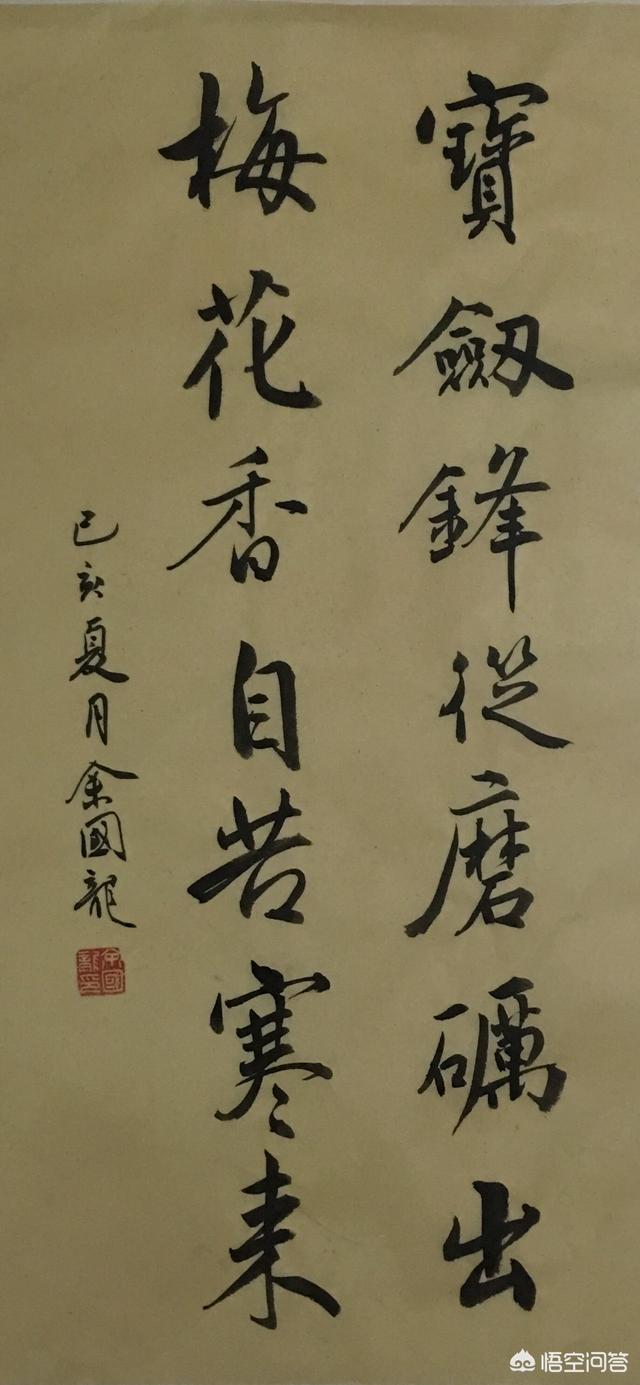 寶劔鋒從磨礪出
梅花香自苦寒来
己亥夏月余國龍
余國龍印
悟空问答